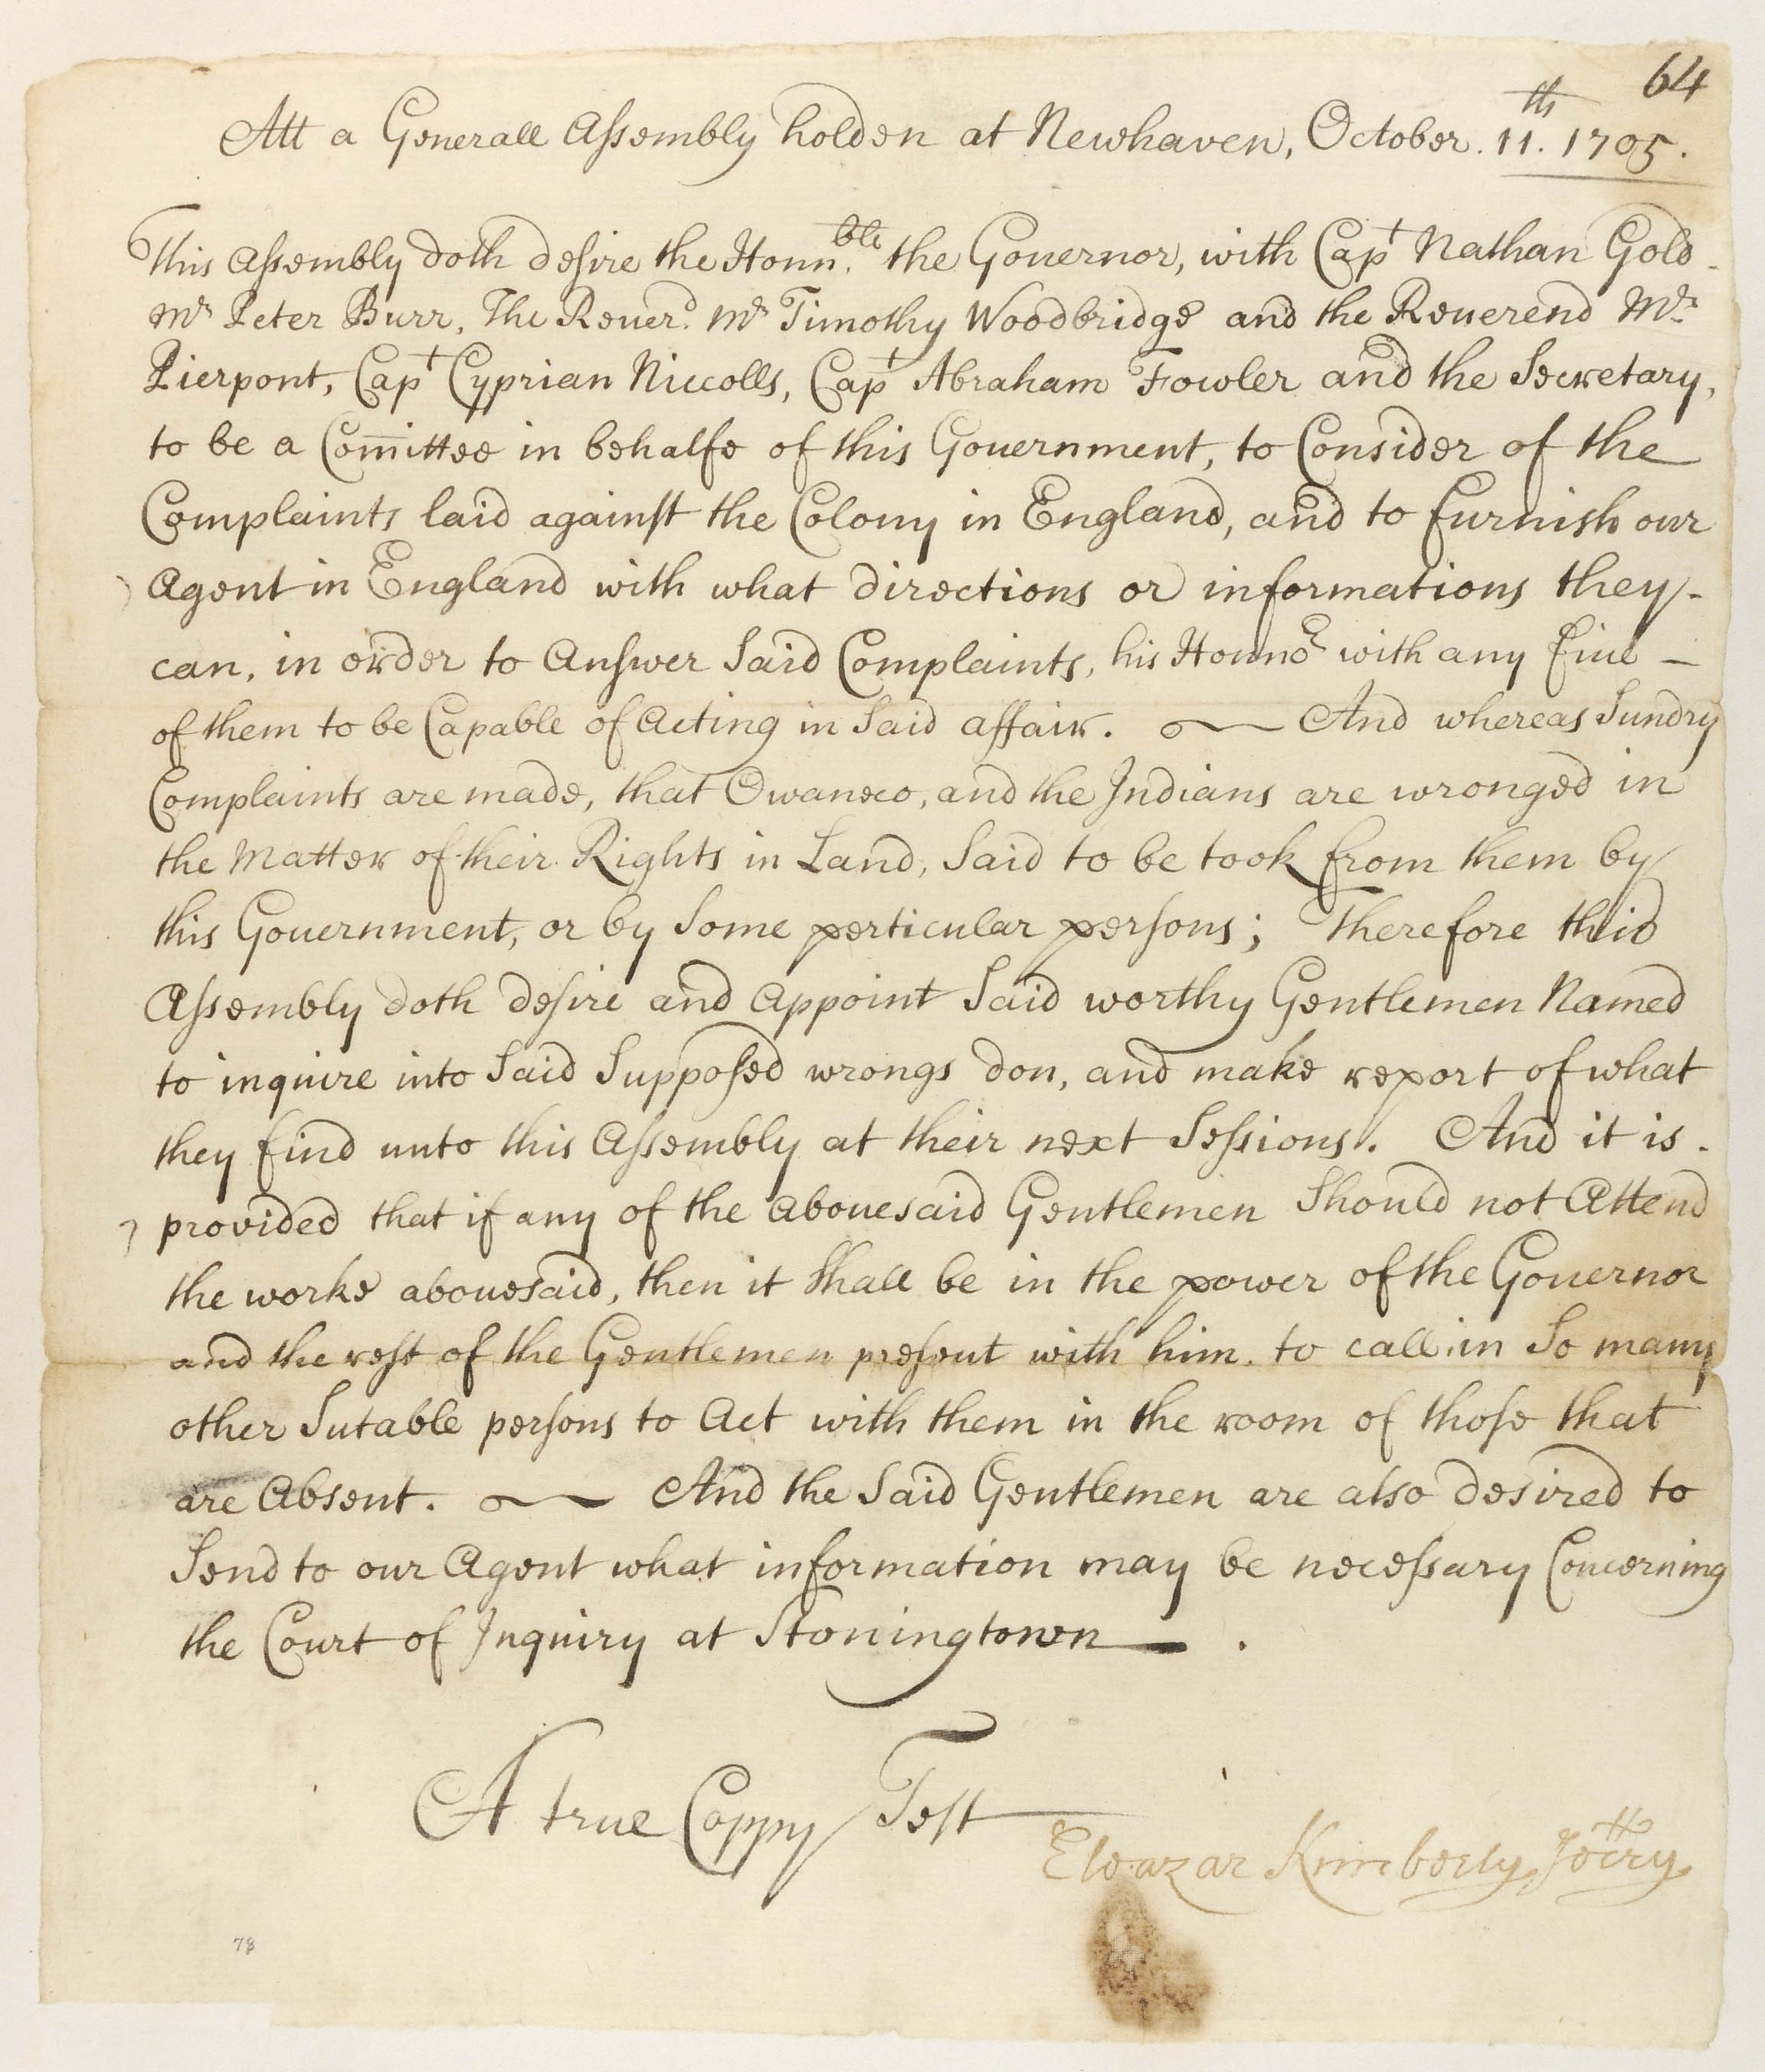 64
Att a Generall Assembly holden at Newhaven, October. 11.th 1705.
This Assembly doth desire the Honn.ble the Gouernor, with Capt Nathan Gold
Mr Peter Burr, The Reuerd. Mr Timothy Woodbridge and the Reuerend Mr.
Pierpont, Capt Cyprian Niccolls, Capt Abraham Fowler and the Secretary,
to be a Com̅ittee in behalfe of this Gouernment, to Consider of the
Complaints laid against the Colony in England, and to furnish our
Agent in England with what directions or informations they -
can, in order to Answer Said Complaints, his Honnor with any fiue —
of them to be Capable of Acting in Said affair. — And whereas Sundry
Complaints are made, that Owaneco, and the Indians are wronged in
the Matter of their Rights in Land, Said to be took from them by
this Gouernment, or by Some perticular persons; Therefore this
Assembly doth desire and Appoint Said worthy Gentlemen Named
to inquire into Said Supposed wrongs don, and make report of what
they find unto this Assembly at their next Sessions. And it is -
provided that if any of the Abouesaid Gentlemen Should not Attend
the worke abouesaid, then it Shall be in the power of the Gouernor
and the rest of the Gentlemen present with him. to call in So many
other Sutable persons to Act with them in the room of those that
are Absent. — And the Said Gentlemen are also desired to
Send to our Agent what information may be necessary Concerning
the Court of Inquiry at Stoningtown — .
A true Coppy Test
Eleazar Kimberly Secrtry
78